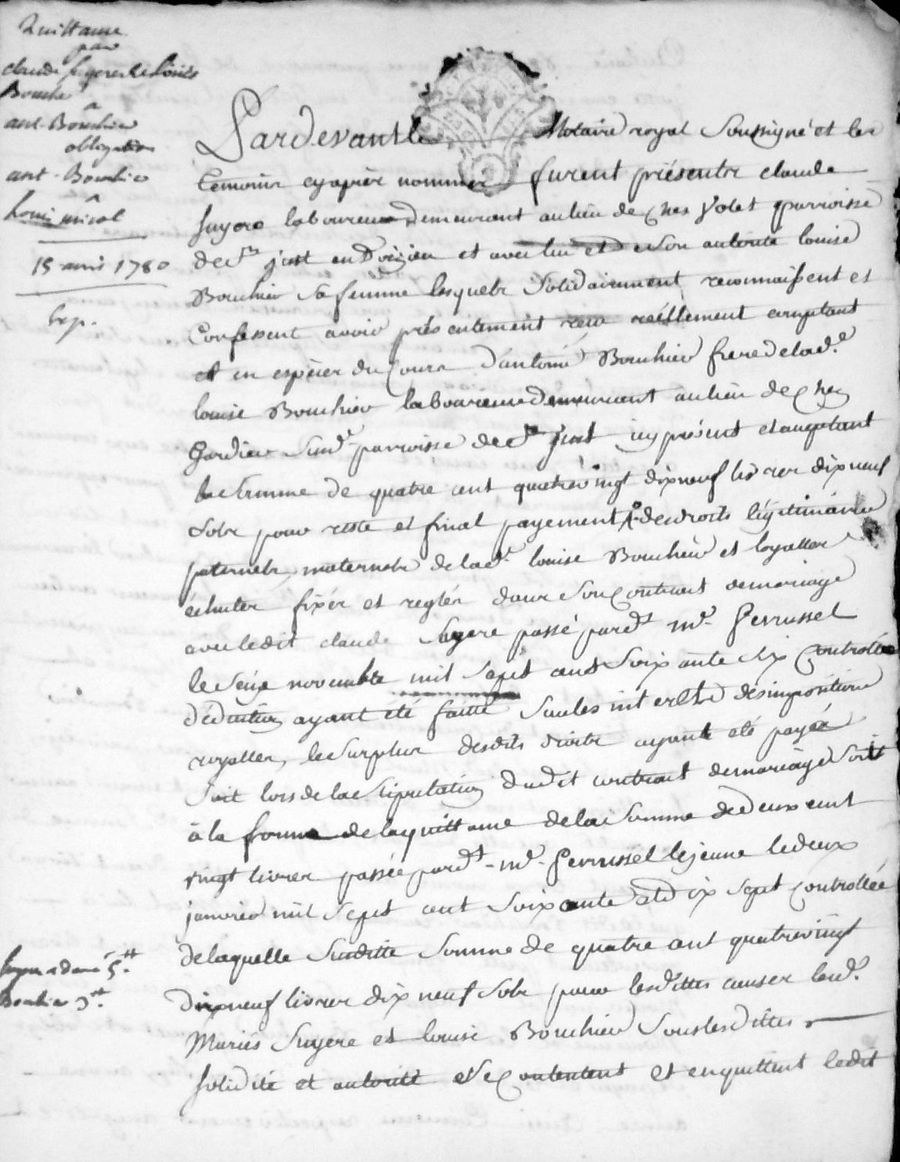 Quittance
par
claude suyere & louise
Bouchié
a
ant. Bouchié
obligation
ant. Bouchié
a
Louis
15 avril 1780
exp.
Pardevant le Notaire royal Soussigné et les
temoins cyaprès nommés furent présents claude
suyere laboureur demeurant au lieu de chés Volet parroisse
de St. just en et avec lui et de son autorité louise
Bouchié sa femme lesquels solidairement reconnaissent et
Confessent avoir présentement reçu réellement comptant
et en espèces du Cours d'antoine Bouchié frere de lad.e
louise Bouchié laboureur demeurant au lieu de chez
gardien Susd. parroisse de St. just icy présent et acceptant
la Somme de quatre cent quatrevingt dixneuf livres dixneuf
sols pour reste et final payement des droits légitimaires
paternels, maternels de lad. louise Bouchié et loyaltes
échutes fixés et reglés dans Son Contrait de mariage
avec ledit claude Suyere passé pard.t m.e Perrussel
le Seize novembre mil Sept cent Soixante Six Controllée
déduction ayant été faitte sur les interets des impositions
royalles, le Surplus desdits droits ayant été payés
Soit lors de la Stipulation dudit contrait de mariage Soit
à la forme de la quittance de la Somme de deux cent
vingt livres passée pard.t m.e Perrussel lejeune le deux
janvier mil Sept cent soixante et dix sept Controllée
de laquelle Susditte Somme de quatre cent quatrevingt
dixneuf livres dix neuf sols pour lesdittes causes lesd.
Mariés Suyere et louise Bouchié Sous lesdittes
solidité et autorité se contentent et en quittent ledit
a donné 5.tt
Bouchié 3.tt